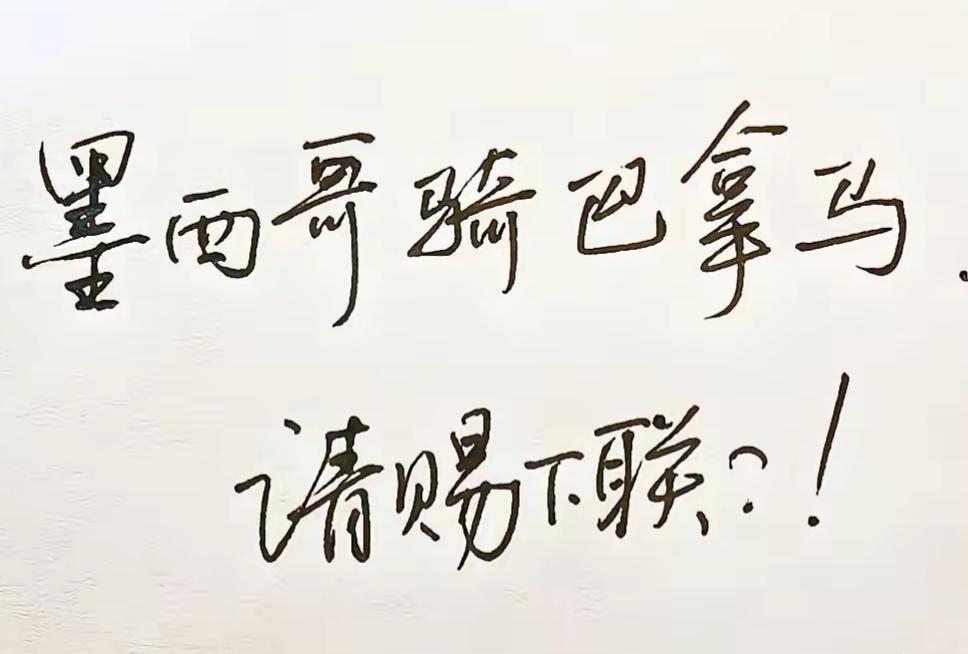 墨西哥骑巴拿马.
请赐下联?!